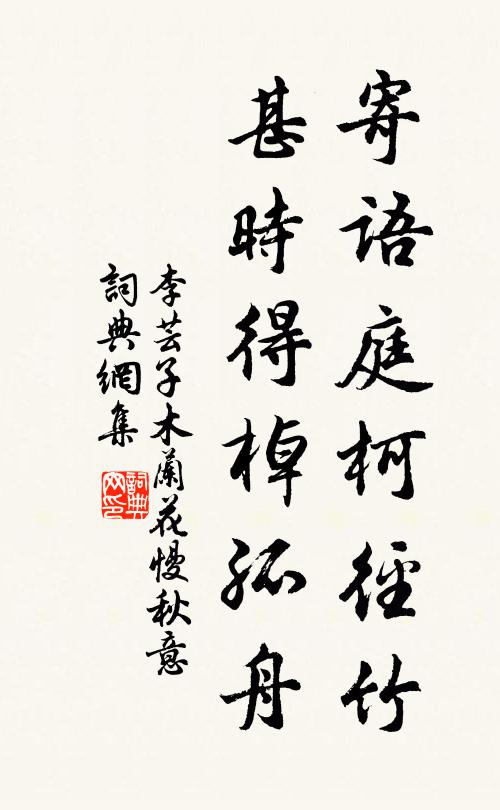 寄語庭柯徑竹
甚時得棹孤舟
李芸子木蘭花慢秋意
詞典網集
詞典
网印